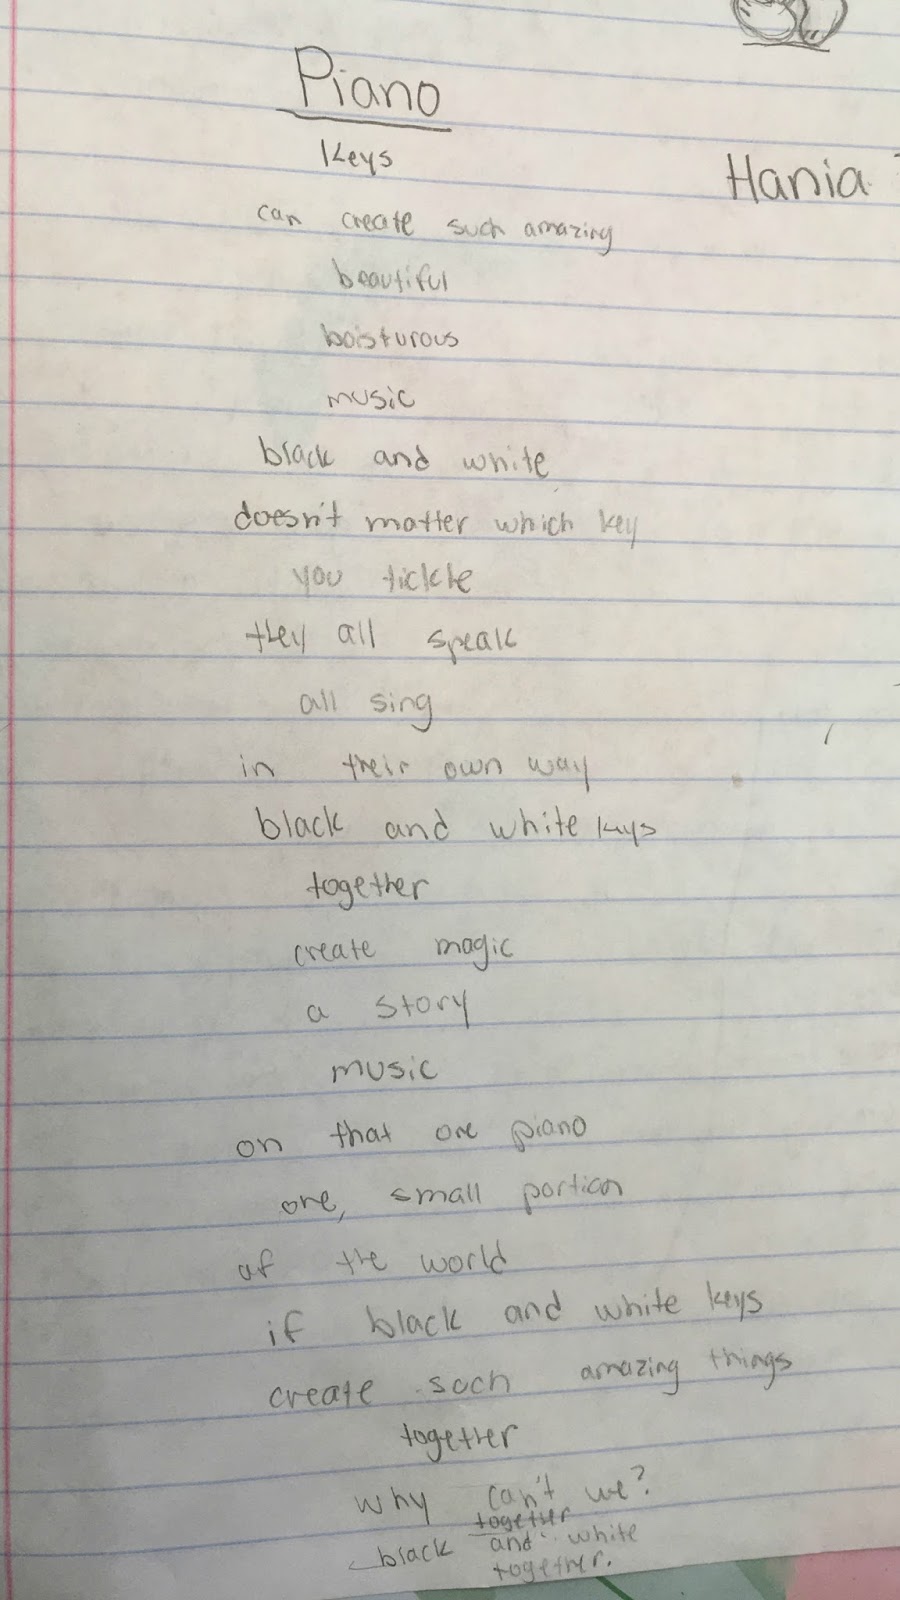 Piano
Keys
Hania
can create such amazing
beautiful
boisturous
music
black and white
doesn't matter which key
you tickle
they all speak
all sing
in their own way
black and white keys
together
create magic
a story
music
on that one piano
one, small portion
of the world
if black and white keys
create such amazing things
together
why can't we?
together
black and white
together.